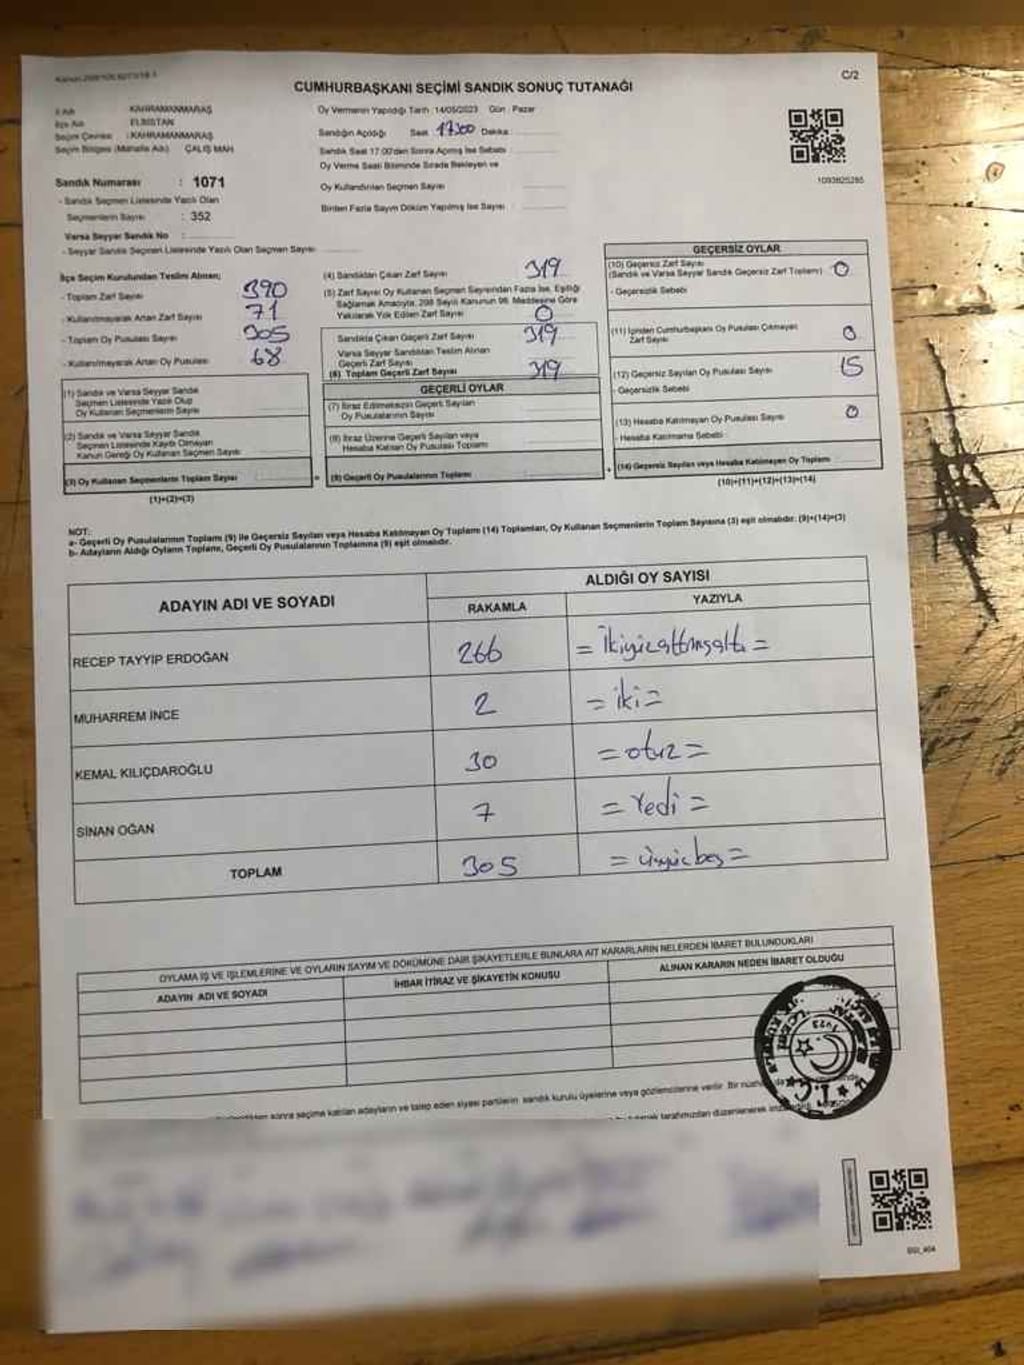 C/2
CUMHURBAŞKANI SEÇİMİ SANDIK SONUÇ TUTANAĞI
İl Adı : KAHRAMANMARAŞ
İlçe Adı : ELBİSTAN
Seçim Çevresi : KAHRAMANMARAŞ
Seçim Bölgesi (Mahalle Adı) : ÇALIŞ MAH
Sandık Numarası : 1071
- Sandık Seçmen Listesinde Yazılı Olan
Seçmenlerin Sayısı : 352
Varsa Seyyar Sandık No :
- Seyyar Sandık Seçmen Listesinde Yazılı Olan Seçmen Sayısı:
Oy Vermenin Yapıldığı Tarih : 14/05/2023 Gün : Pazar
Sandığın Açıldığı Saat 17:00 Dakika
Sandık Saat 17.00'den Sonra Açılmış İse Sebebi :
Oy Verme Saati Bitiminde Sırada Bekleyen ve
Oy Kullandırılan Seçmen Sayısı
Birden Fazla Sayım Döküm Yapılmış İse Sayısı :
1093825285
İlçe Seçim Kurulundan Teslim Alınan;
- Toplam Zarf Sayısı 390
- Kullanılmayarak Artan Zarf Sayısı 71
- Toplam Oy Pusulası Sayısı 305
- Kullanılmayarak Artan Oy Pusulası 68
(1) Sandık ve Varsa Seyyar Sandık
Seçmen Listesinde Yazılı Olup
Oy Kullanan Seçmenlerin Sayısı
(2) Sandık ve Varsa Seyyar Sandık
Seçmen Listesinde Kayıtlı Olmayan
Kanun Gereği Oy Kullanan Seçmen Sayısı
(3) Oy Kullanan Seçmenlerin Toplam Sayısı
(1)+(2)=(3)
(4) Sandıktan Çıkan Zarf Sayısı 319
(5) Zarf Sayısı Oy Kullanan Seçmen Sayısından Fazla İse, Eşitliği
Sağlamak Amacıyla, 298 Sayılı Kanunun 98. Maddesine Göre
Yakılarak Yok Edilen Zarf Sayısı 0
Sandıkta Çıkan Geçerli Zarf Sayısı 319
Varsa Seyyar Sandıktan Teslim Alınan
Geçerli Zarf Sayısı
(6) Toplam Geçerli Zarf Sayısı 319
GEÇERLİ OYLAR
(7) İtiraz Edilmeksizin Geçerli Sayılan
Oy Pusulalarının Sayısı
(8) İtiraz Üzerine Geçerli Sayılan veya
Hesaba Katılan Oy Pusulası Toplamı
(9) Geçerli Oy Pusulalarının Toplamı
GEÇERSİZ OYLAR
(10) Geçersiz Zarf Sayısı
(Sandık ve Varsa Seyyar Sandık Geçersiz Zarf Toplamı) 0
- Geçersizlik Sebebi
(11) İçinden Cumhurbaşkanı Oy Pusulası Çıkmayan
Zarf Sayısı 0
(12) Geçersiz Sayılan Oy Pusulası Sayısı 15
- Geçersizlik Sebebi
(13) Hesaba Katılmayan Oy Pusulası Sayısı 0
- Hesaba Katılmama Sebebi
(14) Geçersiz Sayılan veya Hesaba Katılmayan Oy Toplamı
(10)+(11)+(12)+(13)=(14)
NOT:
a- Geçerli Oy Pusulalarının Toplamı (9) ile Geçersiz Sayılan veya Hesaba Katılmayan Oy Toplamı (14) Toplamları, Oy Kullanan Seçmenlerin Toplam Sayısına (3) eşit olmalıdır. (9)+(14)=(3)
b- Adayların Aldığı Oyların Toplamı, Geçerli Oy Pusulalarının Toplamına (9) eşit olmalıdır.
ADAYIN ADI VE SOYADI
ALDIĞI OY SAYISI
RAKAMLA YAZIYLA
RECEP TAYYİP ERDOĞAN 266 = İkiyüzaltmışaltı =
MUHARREM İNCE 2 = iki =
KEMAL KILIÇDAROĞLU 30 = otuz =
SİNAN OĞAN 7 = Yedi =
TOPLAM 305 = üçyüzbeş =
OYLAMA İŞ VE İŞLEMLERİNE VE OYLARIN SAYIM VE DÖKÜMÜNE DAİR ŞİKAYETLERLE BUNLARA AİT KARARLARIN NELERDEN İBARET BULUNDUKLARI
ADAYIN ADI VE SOYADI İHBAR İTİRAZ VE ŞİKAYETİN KONUSU ALINAN KARARIN NEDEN İBARET OLDUĞU
T.C.
sonra seçime katılan adayların ve talep eden siyasi partilerin sandık kurulu üyelerine veya gözlemcilerine verilir. Bir
tarafımızdan düzenlenerek